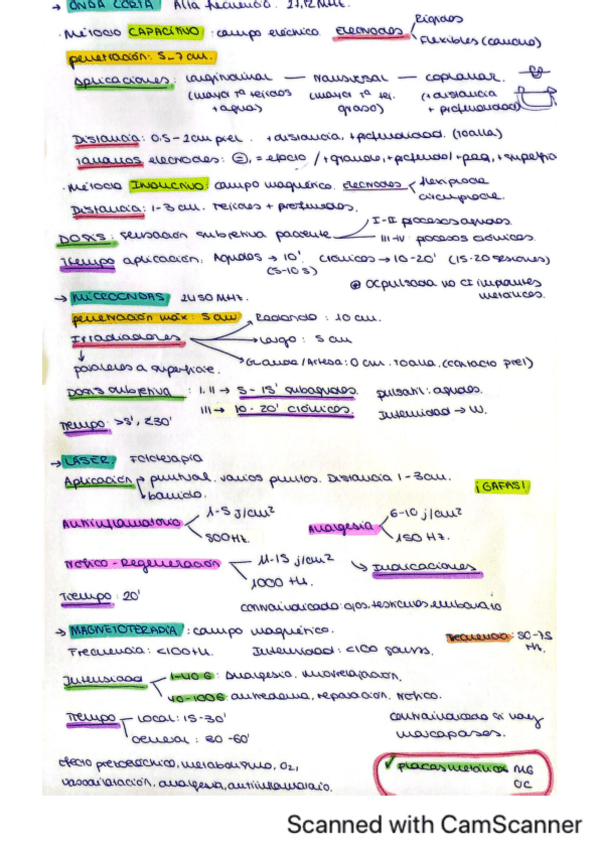 → ONDA CORTA Alta frecuencia. 27,12 MHz.
· Método CAPACITIVO: campo eléctrico. Electrodos Rígidos
Flexibles (caucho)
penetración: 5-7 cm.
Aplicaciones: Longitudinal — transversal — coplanar.
(mayor Tª tejidos (mayor Tª tej. (+distancia
+agua) graso) + profundidad)
Distancia: 0,5-2cm piel. +distancia, +profundidad. (toalla)
Tamaños electrodos: =efecto / +grande, +profundo / +peq, +superficie
· Método INDUCTIVO: campo magnético. Electrodos flexiplode
circuplode.
Distancia: 1-3 cm. tejidos + profundos.
DOSIS: sensación subjetiva paciente I-II procesos agudos.
III-IV procesos crónicos.
Tiempo aplicación: Agudos → 10' Crónicos → 10-20' (15-20 sesiones)
(5-10 s)
OC pulsada no CI implantes
metálicos.
→ MICROONDAS 2450 MHz.
penetración máx: 3 cm Redondo: 10 cm.
Irradiadores → largo: 5 cm
paralelos a superficie. Grande/Artesa: 0 cm. toalla. (contacto piel)
Dosis subjetiva: I, II → 5-15' subagudos. pulsátil: agudos.
III → 10-20' crónicos. Intensidad → W.
Tiempo: >3', ≤30'
→ LÁSER: Fototerapia
Aplicación puntual. varios puntos. Distancia 1-3cm.
barrido.
¡GAFAS!
Antiinflamatorio 1-5 J/cm² Analgesia 6-10 j/cm²
500Hz. 150 Hz.
Trófico-Regeneración 11-15 j/cm² Indicaciones
1000 Hz.
Tiempo: 20' contraindicado ojos, testículos, embarazo
→ MAGNETOTERAPIA: campo magnético. Frecuencia: 50-75
Hz.
Frecuencia: <100Hz. Intensidad: <100 gauss.
Intensidad 1-40 G: Analgesia, miorrelajación.
40-100G: antiedema, reparación, trófico.
Tiempo Local: 15-30'
General: 30-60'
contraindicado si hay
marcapasos.
efecto piezoeléctrico, metabolismo, O₂,
vasodilatación, analgesia, antiinflamatorio.
✓ placas metálicas MG
OC
Scanned with CamScanner